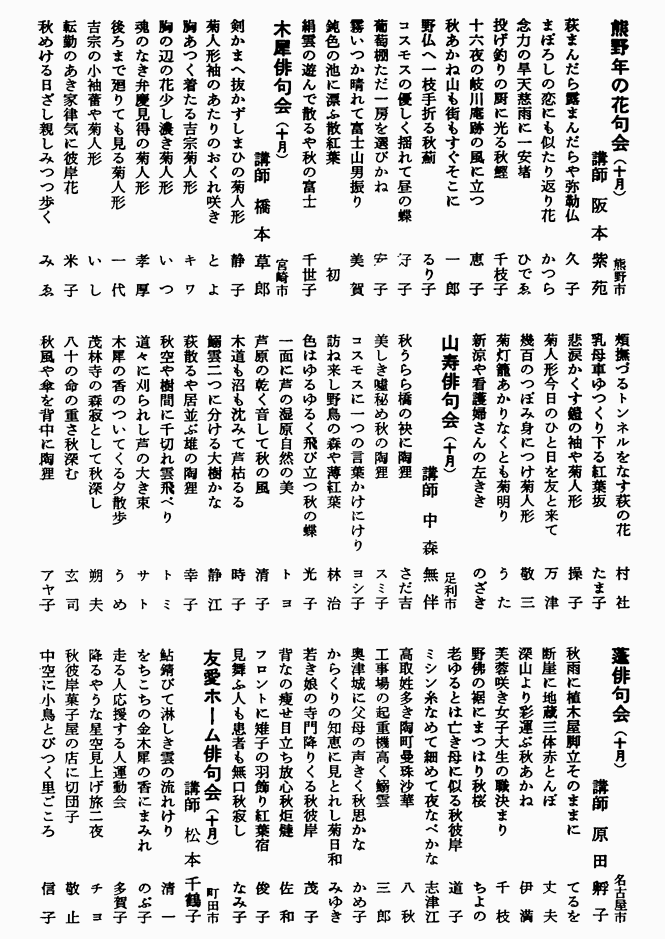 熊野年の花句会(十月)
熊野市
講師 阪本 紫苑
萩まんだら露まんだらや弥勒仏 久子
まぼろしの恋にも似たり返り花 かつら
念力の旱天慈雨に一安堵 ひでゑ
投げ釣りの厨に光る秋鰹 千枝子
十六夜の岐川庵跡の風に立つ 恵子
秋あかね山も街もすぐそこに 一郎
野仏へ一枝手折る秋薊 るり子
コスモスの優しく揺れて昼の蝶 好子
葡萄棚ただ一房を選びかね 安子
霧いつか晴れて富士山男振り 美賀
鈍色の池に漂ふ散紅葉 初
絹雲の遊んで散るや秋の富士 千世子
木犀俳句会(十月)
宮崎市
講師 橋本 草郎
剣かまへ抜かずしまひの菊人形 静子
菊人形袖のあたりのおくれ咲き とよ
胸あつく着たる吉宗菊人形 キワ
胸の辺の花少し濃き菊人形 いつ
魂のなき弁慶見得の菊人形 孝厚
後ろまで廻りても見る菊人形 一代
吉宗の小袖蕾や菊人形 いし
転勤のあき家律気に彼岸花 米子
秋めける日ざし親しみつつ歩く みゑ
頬撫づるトンネルをなす萩の花 村社
乳母車ゆつくり下る紅葉坂 たま子
悲涙かくす鎧の袖や菊人形 操子
菊人形今日のひと日を友と来て 万津
幾百のつぼみ身につけ菊人形 敬三
菊灯籠あかりなくとも菊明り うた
新涼や看護婦さんの左きき のざき
山寿俳句会(十月)
足利市
講師 中森 無伴
秋うらら橋の袂に陶狸 さだ吉
美しき嘘秘め秋の陶狸 スミ子
コスモスに一つの言葉かけにけり ヨシ子
訪ね来し野鳥の森や薄紅葉 林治
色はゆるゆるく飛び立つ秋の蝶 光子
一面に芦の湿原自然の美 トヨ
芦原の乾く音して秋の風 清子
木道も沼も沈みて芦枯るる 時子
鰯雲二つに分ける大樹かな 静江
萩散るや居並ぶ雄の陶狸 幸子
秋空や樹間に千切れ雲飛べり トミ
道々に刈られし芦の大き束 サト
木犀の香のついてくる夕散歩 うめ
茂林寺の森寂として秋深し 朔夫
八十の命の重さ秋深む 玄司
秋風や傘を背中に陶狸 アヤ子
蓬俳句会(十月)
名古屋市
講師 原田 孵子
秋雨に植木屋脚立そのままに てるを
断崖に地蔵三体赤とんぼ 丈夫
深山より彩運ぶ秋あかね 伊満
芙蓉咲き女子大生の職決まり 千枝
野佛の裾にまつはり秋桜 ちよの
老ゆるとは亡き母に似る秋彼岸 道子
ミシン糸なめて細めて夜なべかな 志津江
高取姓多き陶町曼珠沙華 八秋
工事場の起重機高く鰯雲 三郎
奥津城に父母の声きく秋思かな かめ子
からくりの知恵に見とれし菊日和 みゆき
若き娘の寺門降りくる秋彼岸 茂子
背なの痩せ目立ち放心秋炬燵 佐和
フロントに雉子の羽飾り紅葉宿 俊子
見舞ふ人も患者も無口秋寂し なみ子
友愛ホーム俳句会(十月)
町田市
講師 松本 千鶴子
鮎錆びて淋しき雲の流れけり 清一
をちこちの金木犀の香にまみれ のぶ子
走る人応援する人運動会 多賀子
降るやうな星空見上げ旅二夜 チヨ
秋彼岸菓子屋の店に切団子 敬止
中空に小鳥とびつく里ごころ 信子